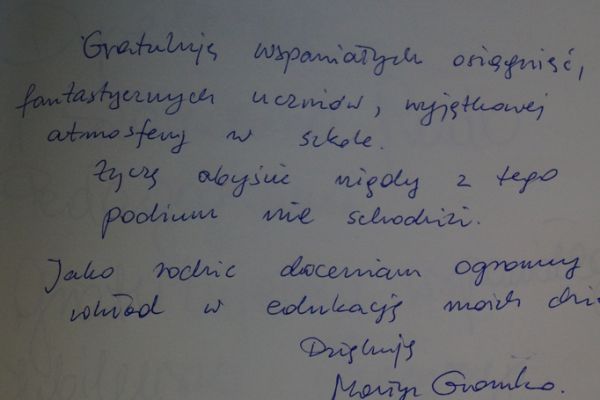 Gratuluję wspaniałych osiągnięć,
fantastycznych uczniów, wyjątkowej
atmosfery w szkole.
Życzę abyście nigdy z tego
podium nie schodzili.
Jako rodzic doceniam ogromny
wkład w edukację moich dzie
Dziękuję